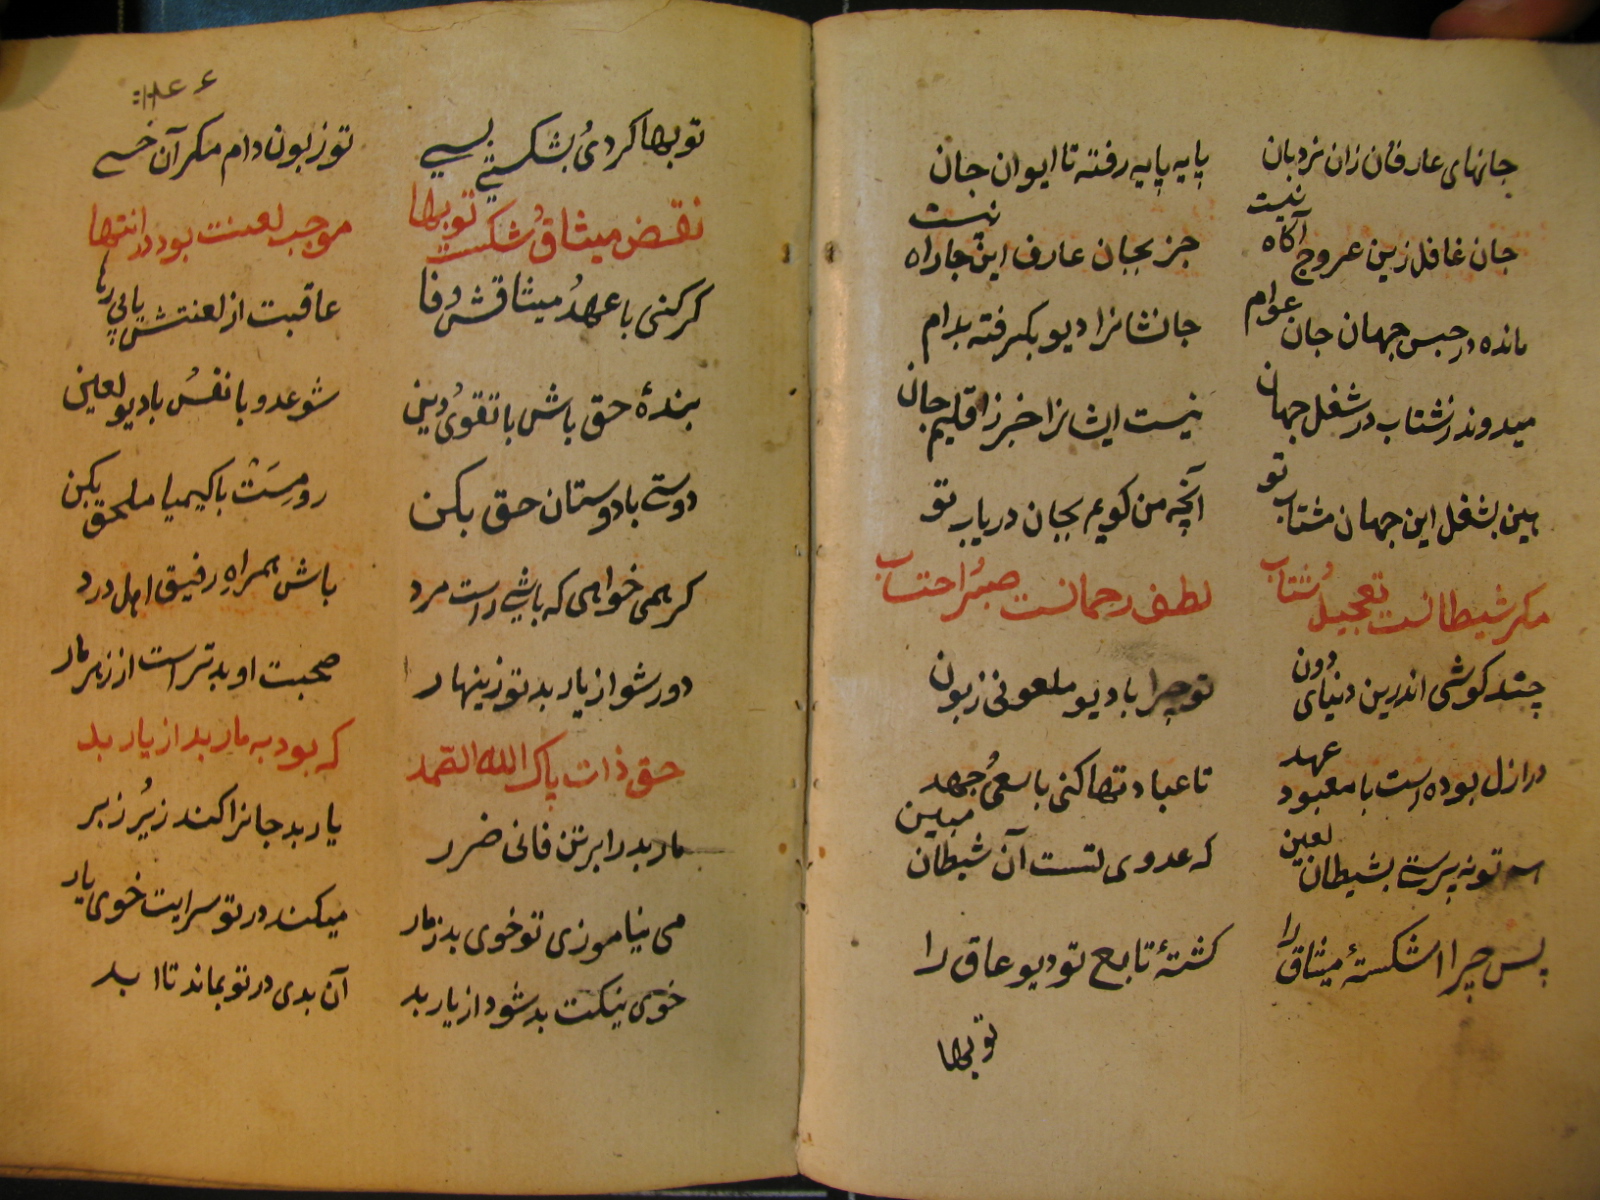 جانهای عارفان زان نردبان پایه پایه رفته تا ایوان جان
جان غافل زین عروج آگاه نیست جز بجان عارف اینجا راه نیست
مانده در حبس جهان جان عوام جانشانرا دیو بگرفته بدام
میدوند از شتاب در شغل جهان نیست ایشانرا خبر ز اقلیم جان
هین بشغل این جهان مشتاب تو آنچه من گویم بجان دریاب تو
مکر شیطانست تعجیل و شتاب لطف رحمانست صبر و احتساب
چند کوشی اندرین دنیای دون تو چرا با دیو ملعونی زبون
در ازل بوده است با معبود عهد تا عبادتها کنی با سعی و جهد
هم تو نپرستی بشیطان لعین که عدوی تست آن شیطان مبین
پس چرا اشکستهٔ میثاق را گشتهٔ تابع تو دیو عاق را
توبها
۱۱۴۶
توبها کردی و بشکستی بسی تو زبون دام مکر آن خسی
نقض میثاق و شکست توبها موجب لعنت بود در انتها
گر کنی با عهد و میثاقش وفا عاقبت از لعنتش یابی رها
بندهٔ حق باش با تقوی و دین شو عدو با نفس و با دیو لعین
دوستی با دوستان حق بکن رو مست با کیمیا ملحق بکن
گر همی خواهی که باشی راست مرد باش همراه رفیق اهل درد
دور شو از یار بد تو زینهار صحبت او بدتر است از زهر مار
حق ذات پاک الله الصمد که بود به مار بد از یار بد
مار بد را بر تن فانی ضرر یار بد جانرا کند زیر و زبر
می نیاموزی تو خوی بد ز مار میکند در تو سرایت خوی یار
خوی نیکت بد شود از یار بد آن بدی در تو بماند تا ابد